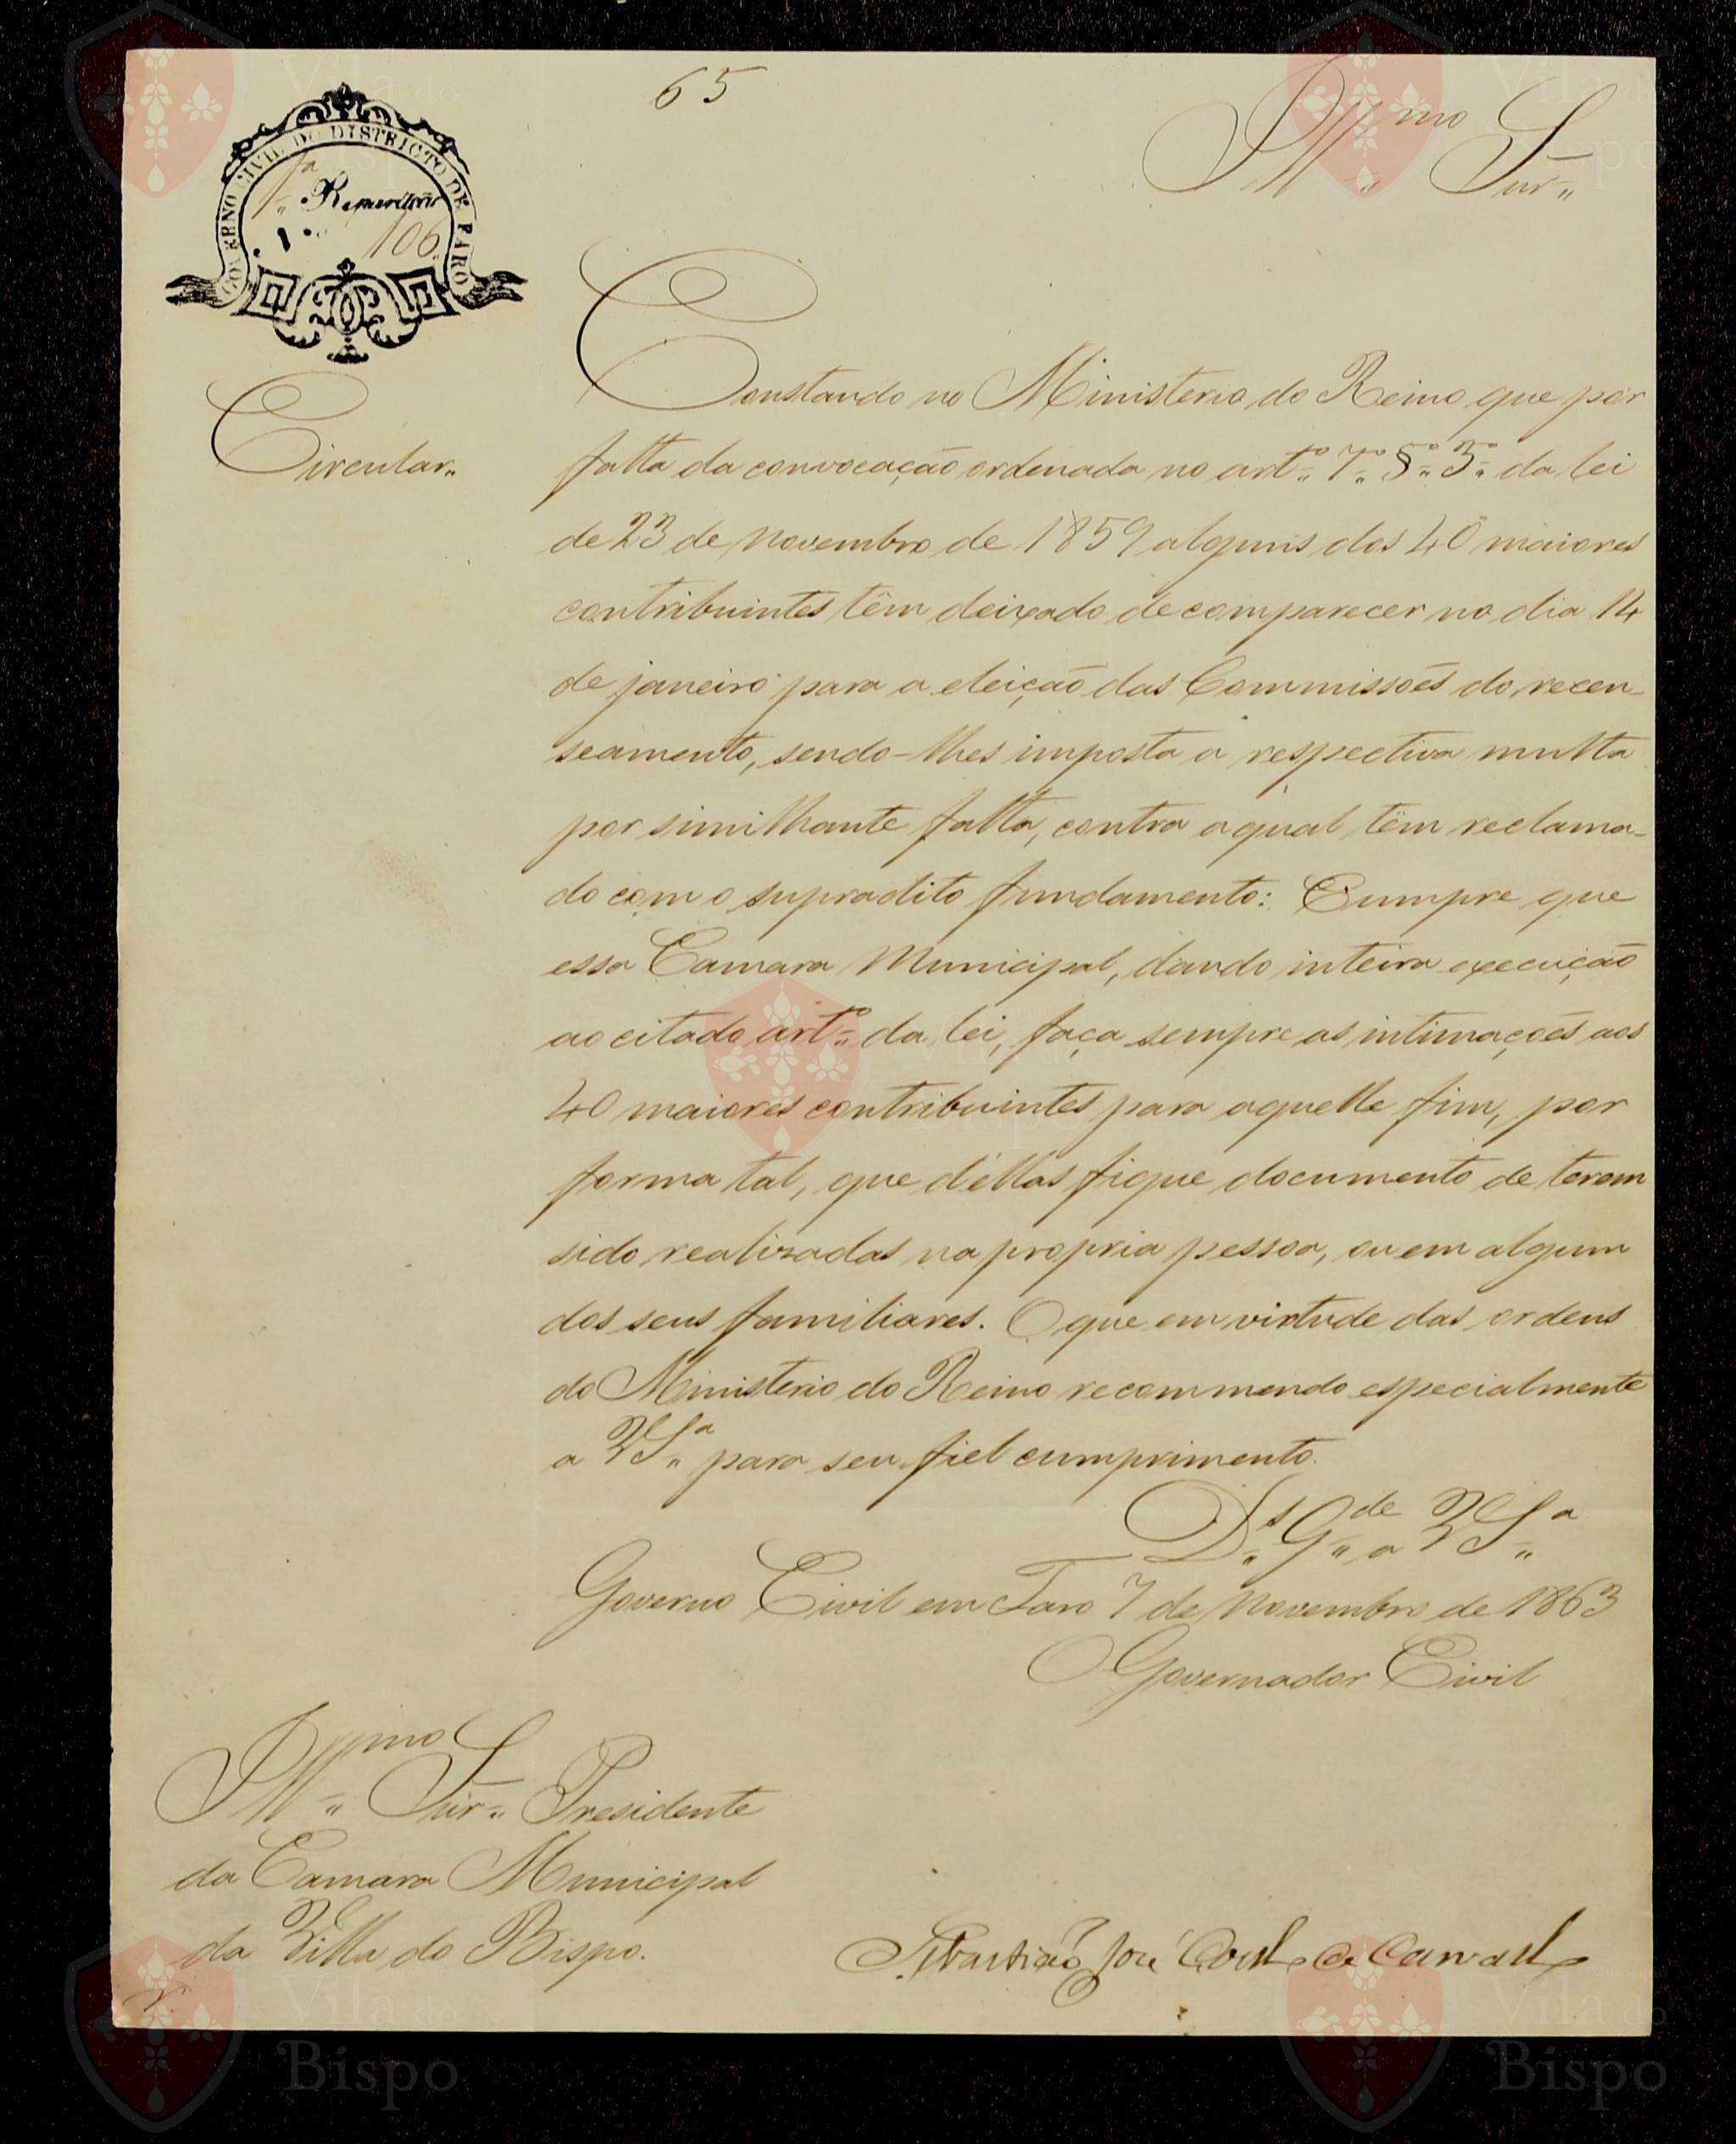 65
Ill.mo Snr.
GOVERNO CIVIL DO DISTRICTO DE FARO
1.a Repartição
N.o 106
Circular.
Constando no Ministerio do Reino que por
falta da convocação ordenada no art.o 7.o §.o 3.o da lei
de 23 de Novembro de 1859 alguns dos 40 maiores
contribuintes têm deixado de comparecer no dia 14
de janeiro para a eleição das Commissões do recen-
seamento, sendo-lhes imposta a respectiva multa
por similhante falta, contra a qual têm reclama-
do com o supradito fundamento: Cumpre que
essa Camara Municipal, dando inteira execução
ao citado art.o da lei, faça sempre as intimações aos
40 maiores contribuintes para aquelle fim, por
forma tal, que d'ellas fique documento de terem
sido realizadas na propria pessoa, ou em algum
dos seus familiares. O que em virtude das ordens
do Ministerio do Reino recommendo especialmente
a V S.a para seu fiel cumprimento.
D.s G.de a V S.a
Governo Civil em Faro 7 de Novembro de 1863
O Governador Civil
Ill.mo Snr. Presidente
da Camara Municipal
da Villa do Bispo.
Sebastião José Coelho de Carvalho
Vila do Bispo
Vila do Bispo
Vila do Bispo
Vila do Bispo